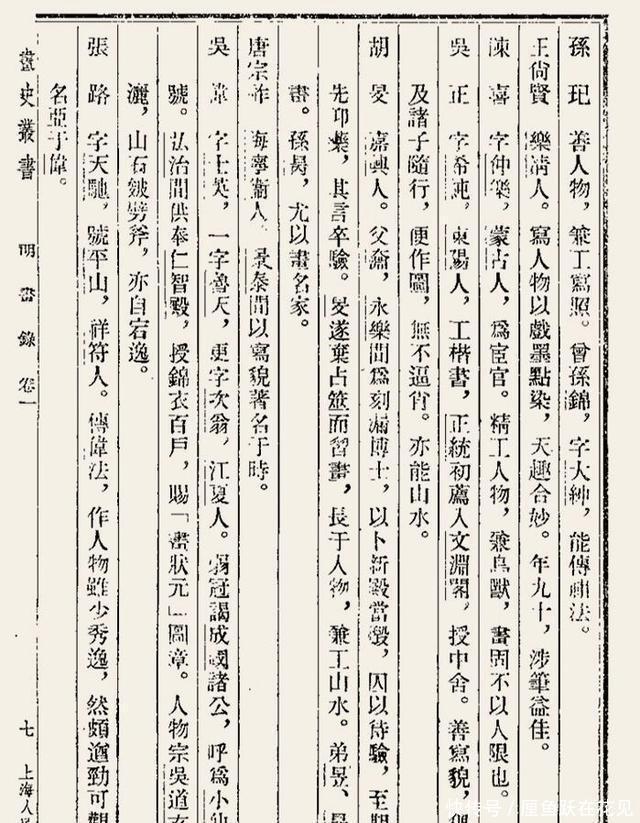 孫玘 善人物，兼工寫照。曾孫錦，字大紳，能傳祖法。
王尙賢 樂淸人。寫人物以戲墨點染，天趣合妙。年九十，涉筆益佳。
陳喜 字仲樂，蒙古人，爲宦官。精工人物，兼鳥獸，畫固不以人限也。
吳正 字希純，東陽人，工楷書，正統初薦入文淵閣，授中舍。善寫貌，
及諸子隨行，便作圖，無不逼肖。亦能山水。
胡旻 嘉興人。父奫，永樂間爲刻漏博士，以卜新殿當燬，囚以待驗，至期
先卬藥，其言卒驗。旻遂棄占筮而習畫，長于人物，兼工山水。弟昱、
畫。孫勗，尤以畫名家。
唐宗祚 海寧衞人。景泰間以寫貌著名于時。
吳偉 字士英，一字魯夫，更字次翁，江夏人。弱冠謁成國諸公，呼爲小仙
號。弘治間供奉仁智殿，授錦衣百戶，賜「畫狀元」圖章。人物宗吳道玄
灑，山石皴劈斧，亦自宕逸。
張路 字天馳，號平山，祥符人。傳偉法，作人物雖少秀逸，然頗遒勁可觀
名亞于偉。
畫史叢書 明畫錄 卷一 七 上海人民
快传号/厘鱼跃在花见